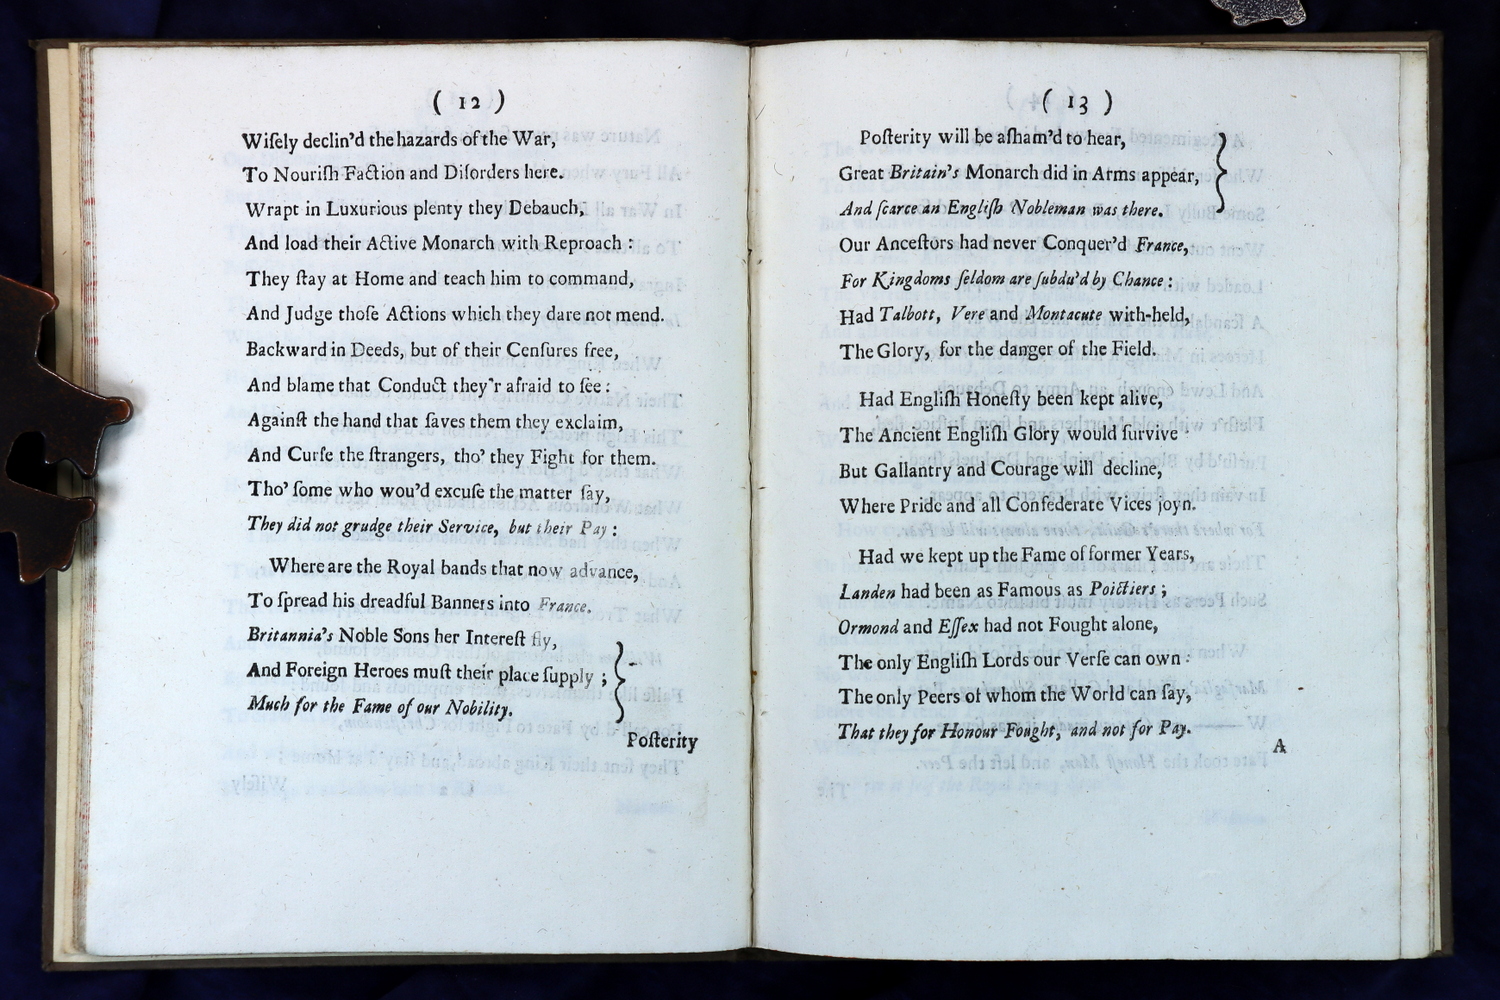 ( 12 )
Wiſely declin'd the hazards of the War,
To Nouriſh Faction and Diſorders here.
Wrapt in Luxurious plenty they Debauch,
And load their Active Monarch with Reproach :
They ſtay at Home and teach him to command,
And Judge thoſe Actions which they dare not mend.
Backward in Deeds, but of their Cenſures free,
And blame that Conduct they'r afraid to ſee :
Againſt the hand that ſaves them they exclaim,
And Curſe the ſtrangers, tho' they Fight for them.
Tho' ſome who wou'd excuſe the matter ſay,
They did not grudge their Service, but their Pay :
Where are the Royal bands that now advance,
To ſpread his dreadful Banners into France.
Britannia's Noble Sons her Intereſt fly,
And Foreign Heroes muſt their place ſupply ;
Much for the Fame of our Nobility.
Poſterity
( 13 )
Poſterity will be aſham'd to hear,
Great Britain's Monarch did in Arms appear,
And ſcarce an Engliſh Nobleman was there.
Our Anceſtors had never Conquer'd France,
For Kingdoms ſeldom are ſubdu'd by Chance :
Had Talbott, Vere and Montacute with-held,
The Glory, for the danger of the Field.
Had Engliſh Honeſty been kept alive,
The Ancient Engliſh Glory would ſurvive
But Gallantry and Courage will decline,
Where Pride and all Confederate Vices joyn.
Had we kept up the Fame of former Years,
Landen had been as Famous as Poictiers ;
Ormond and Eſſex had not Fought alone,
The only Engliſh Lords our Verſe can own :
The only Peers of whom the World can ſay,
That they for Honour Fought, and not for Pay.
A